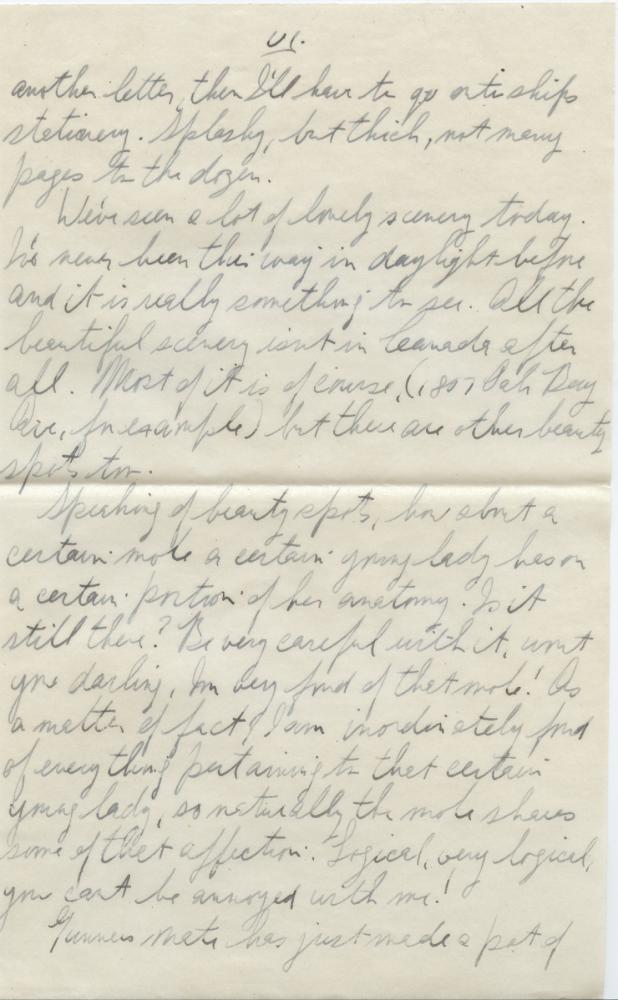 VI.
another letter, then I'll have to go onto ships
stationery. Splashy, but thick, not many
pages to the dozen.
We've seen a lot of lovely scenery today.
I've never been this way in daylight before
and it is really something to see. All the
beautiful scenery isnt in Canada after
all. Most of it is of course, (1807 Oak Bay
Ave, for example) but there are other beauty
spots too.
Speaking of beauty spots, how about a
certain mole a certain young lady has on
a certain portion of her anatomy. Is it
still there? Be very careful with it, wont
you darling, Im very fond of that mole! As
a matter of fact, I am inordinately fond
of everything pertaining to that certain
young lady, so naturally the mole shares
some of that affection. Logical, very logical,
you cant be annoyed with me!
Gunners mate has just made a pot of